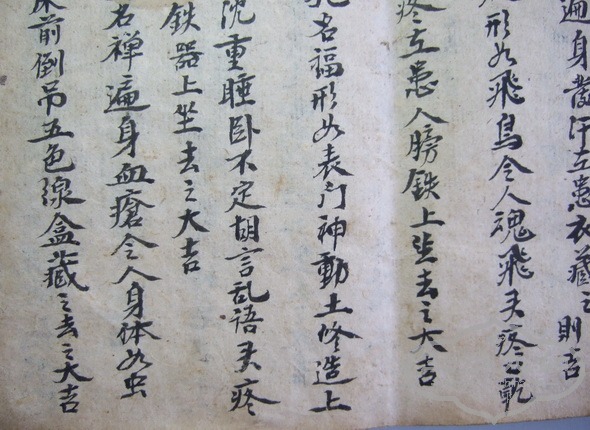 遍身發汗在患衣藏之則吉
形如飛鳥令人魂飛头疼
疼在患人膀鉄上坐去之大吉
名福形如表门神動土修造上
沈重睡卧不定胡言乱語头疼
鉄器上坐去之大吉
名禅遍身血瘡令人身体如虫
床前倒吊五色線盒藏之去之大吉